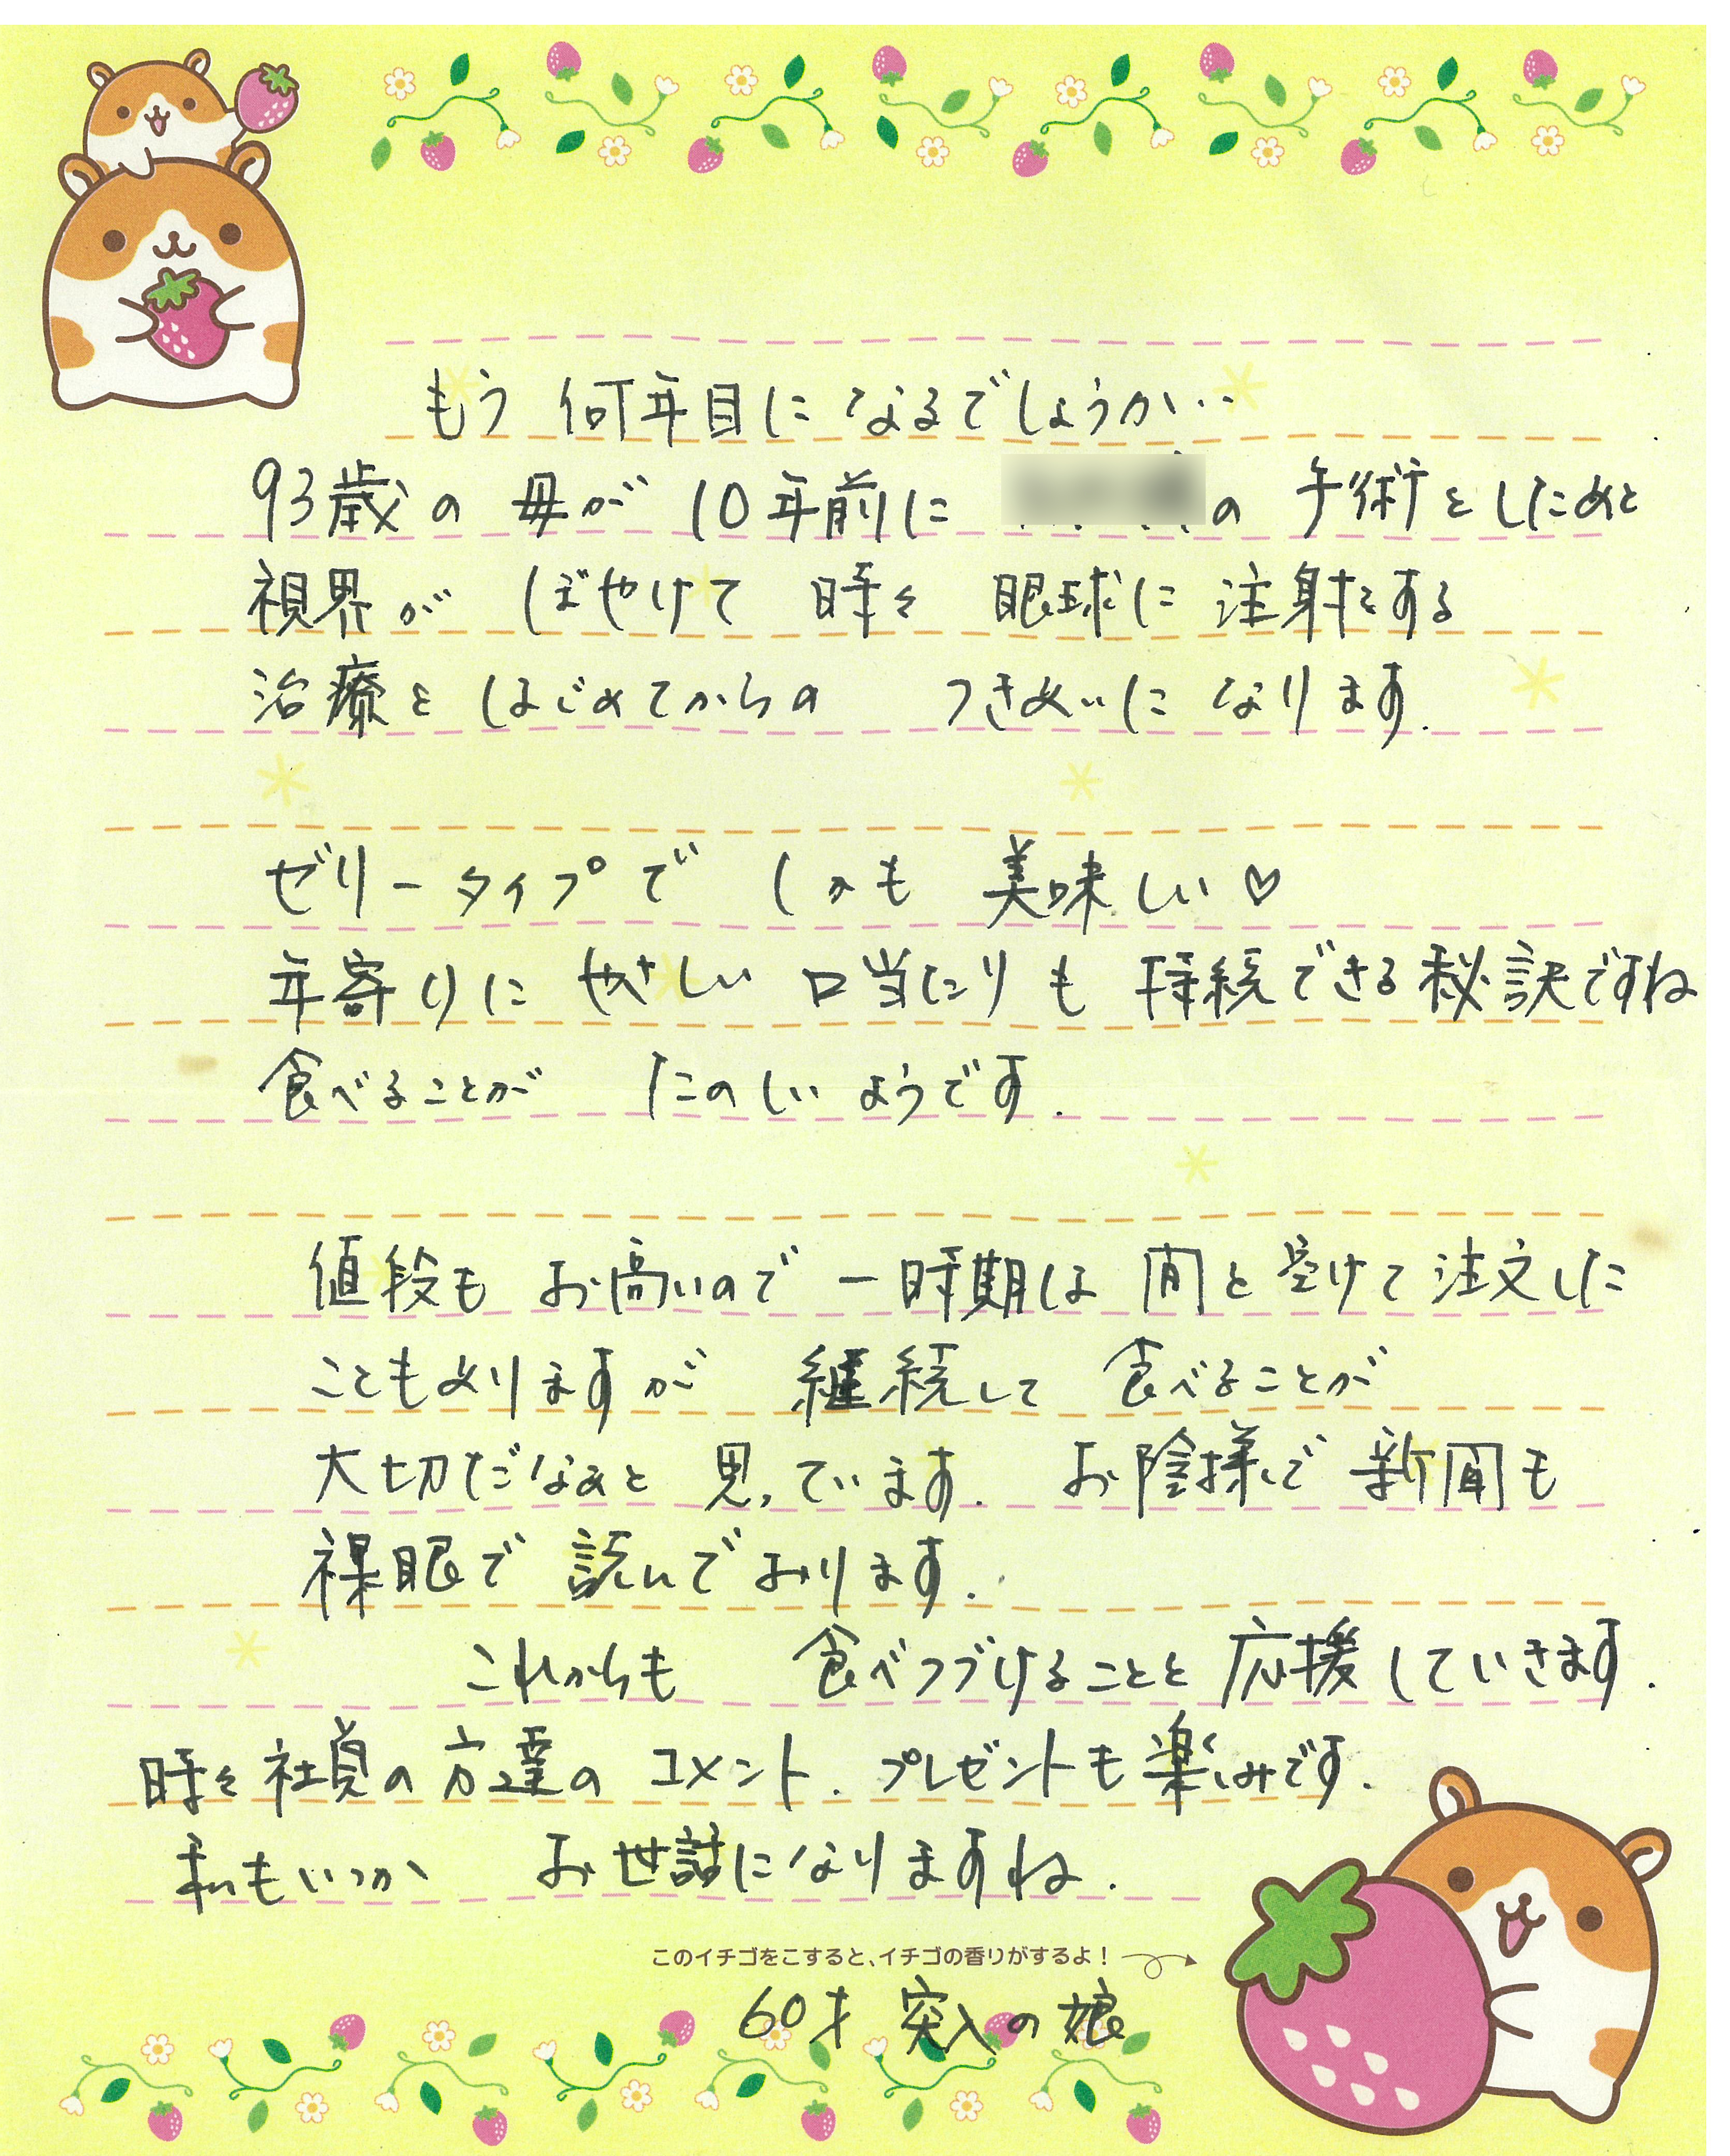 もう 何年目に なるでしょうか…
93歳の 母が 10年前に の 手術をしたあと
視界が ぼやけて 時々 眼球に 注射をする
治療を はじめてからの つきあいに なります.
ゼリータイプで しかも 美味しい♡
年寄りに やさしい 口当たりも 持続できる秘訣ですね
食べることが たのしいようです.
値段も お高いので 一時期は 間を空けて注文した
こともありますが 継続して 食べることが
大切だなあと 思っています. お陰様で 新聞も
裸眼で 読んでおります.
これからも 食べつづけることを応援していきます.
時々社員の方達の コメント. プレゼントも楽しみです.
私もいつか お世話になりますね.
このイチゴをこすると、イチゴの香りがするよ！
60才 突入の娘